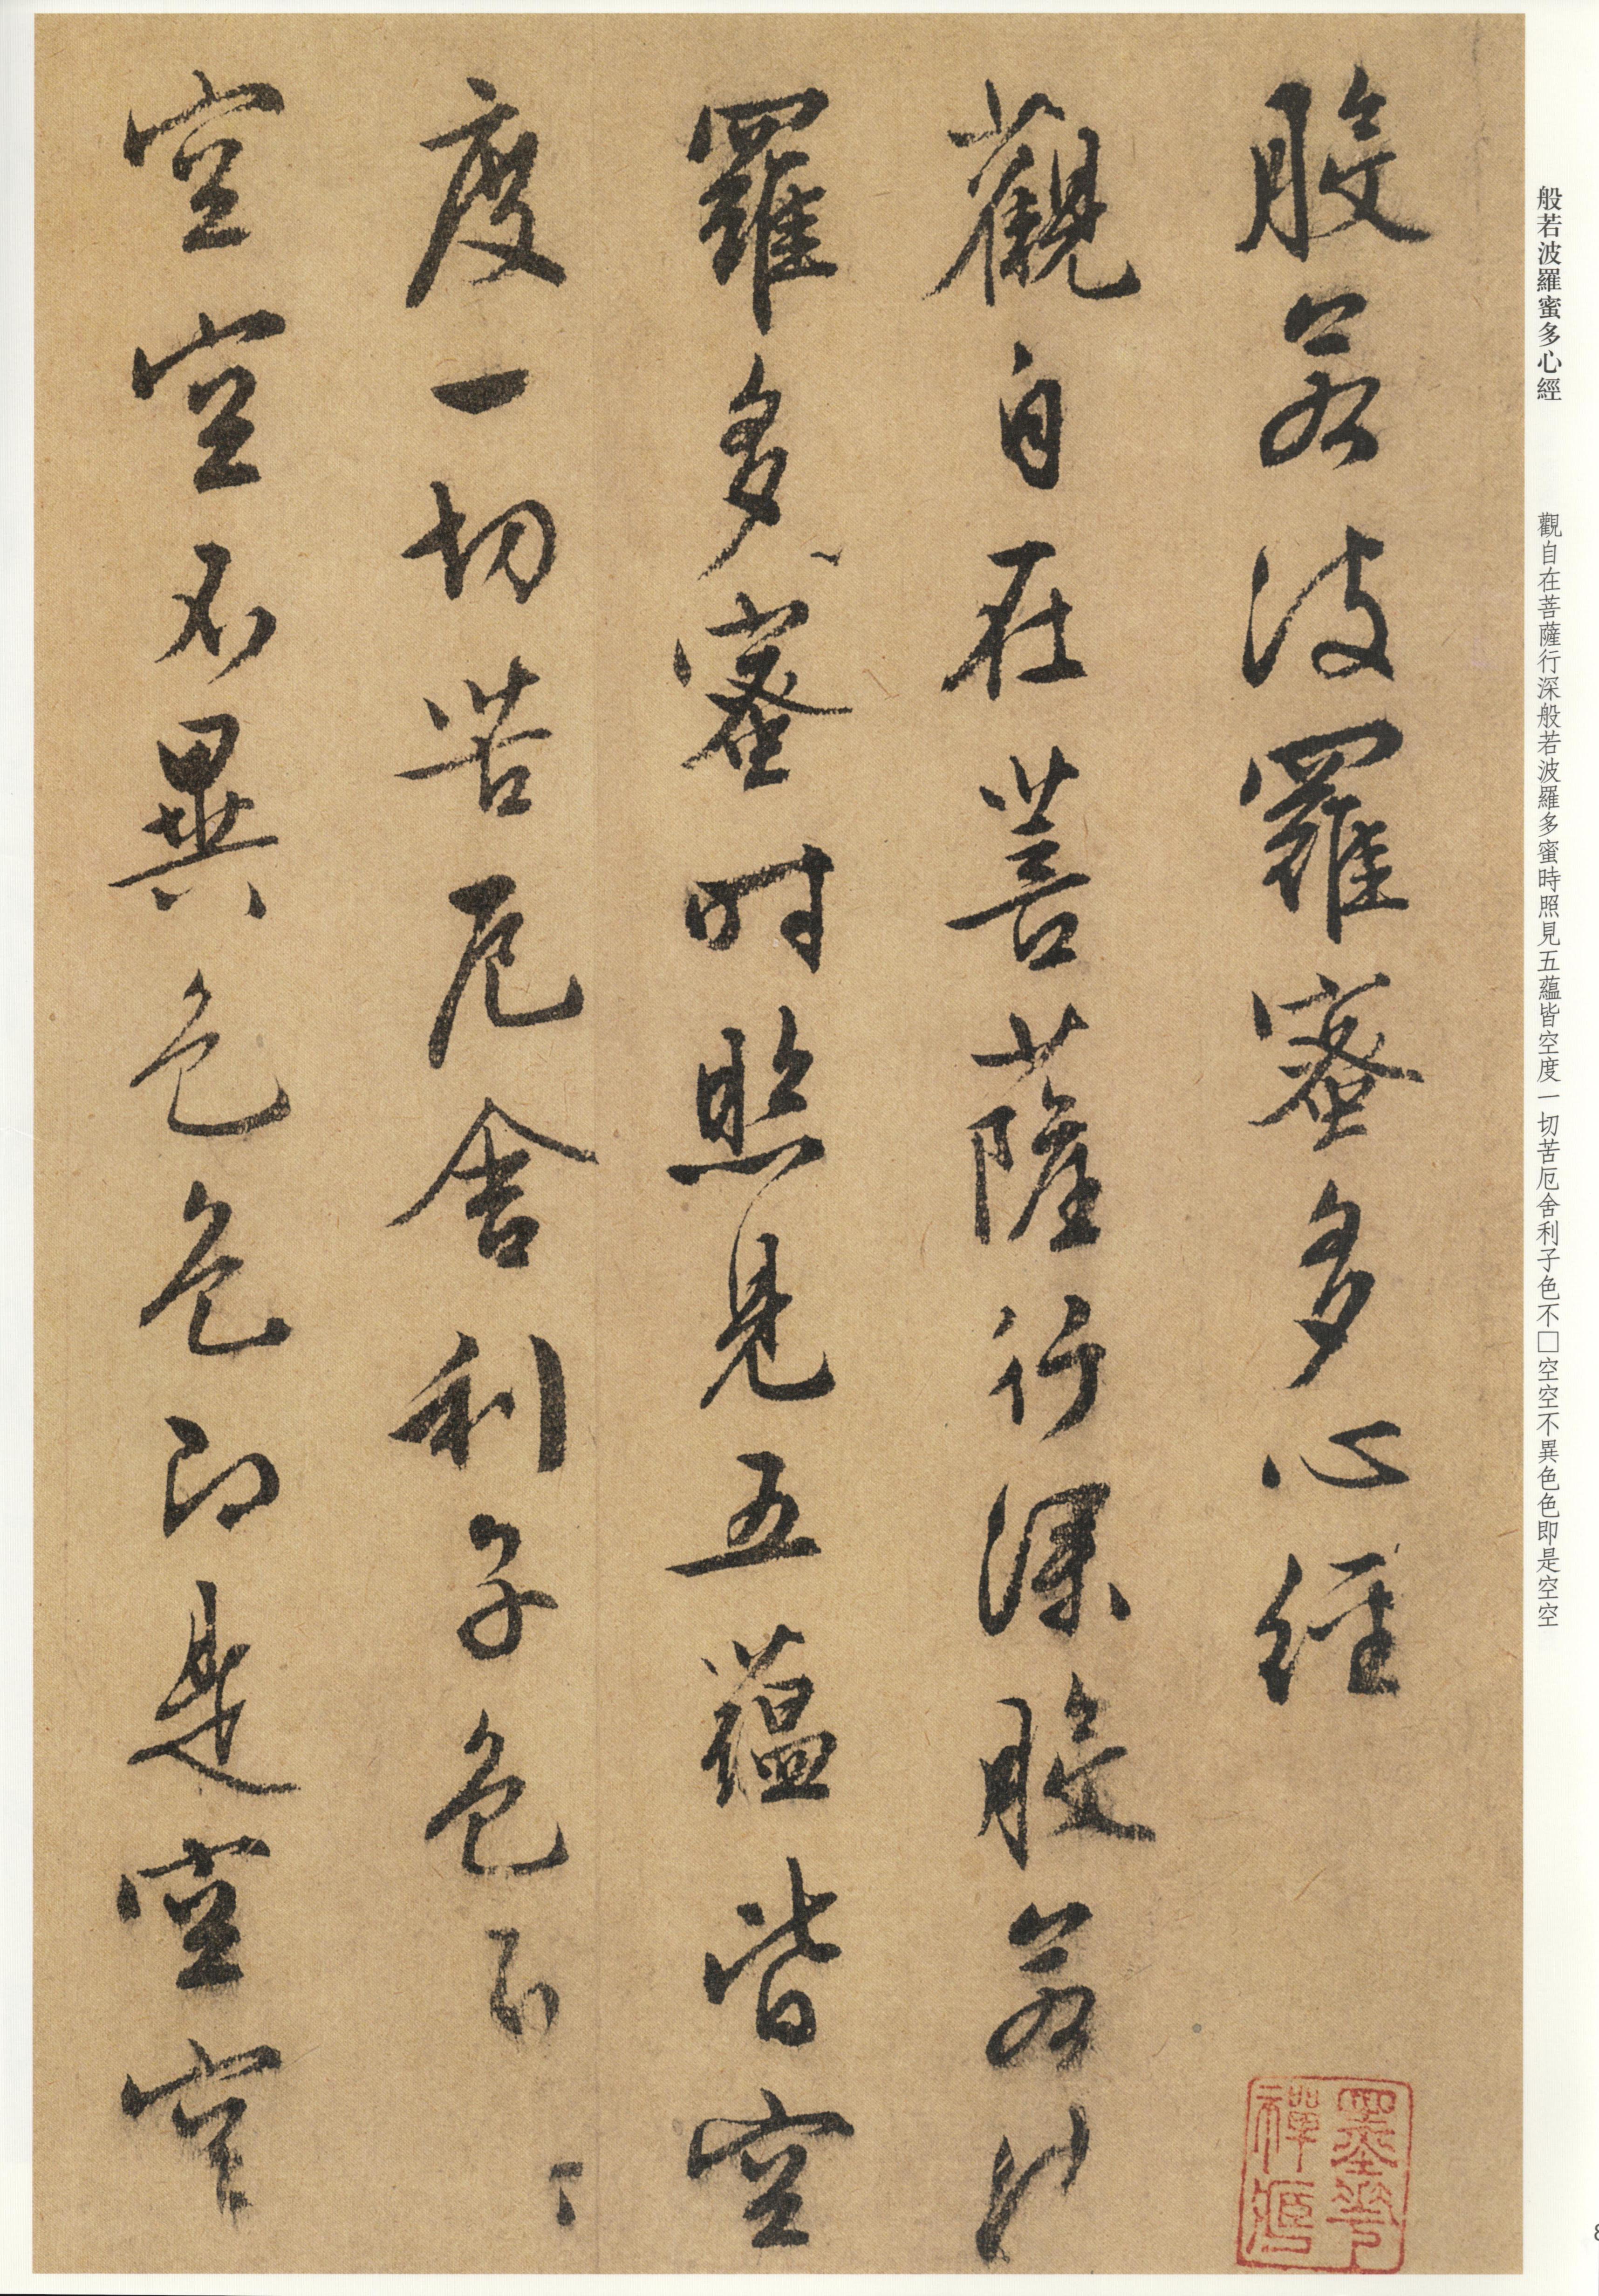 般若波羅蜜多心經
觀自在菩薩行深般若波羅多蜜時照見五蘊皆空度一切苦厄舍利子色不□空空不異色色即是空空
般若波羅蜜多心経
觀自在菩薩行深般若波
羅多蜜時照見五蘊皆空
度一切苦厄舍利子色不
空空不異色色即是空空